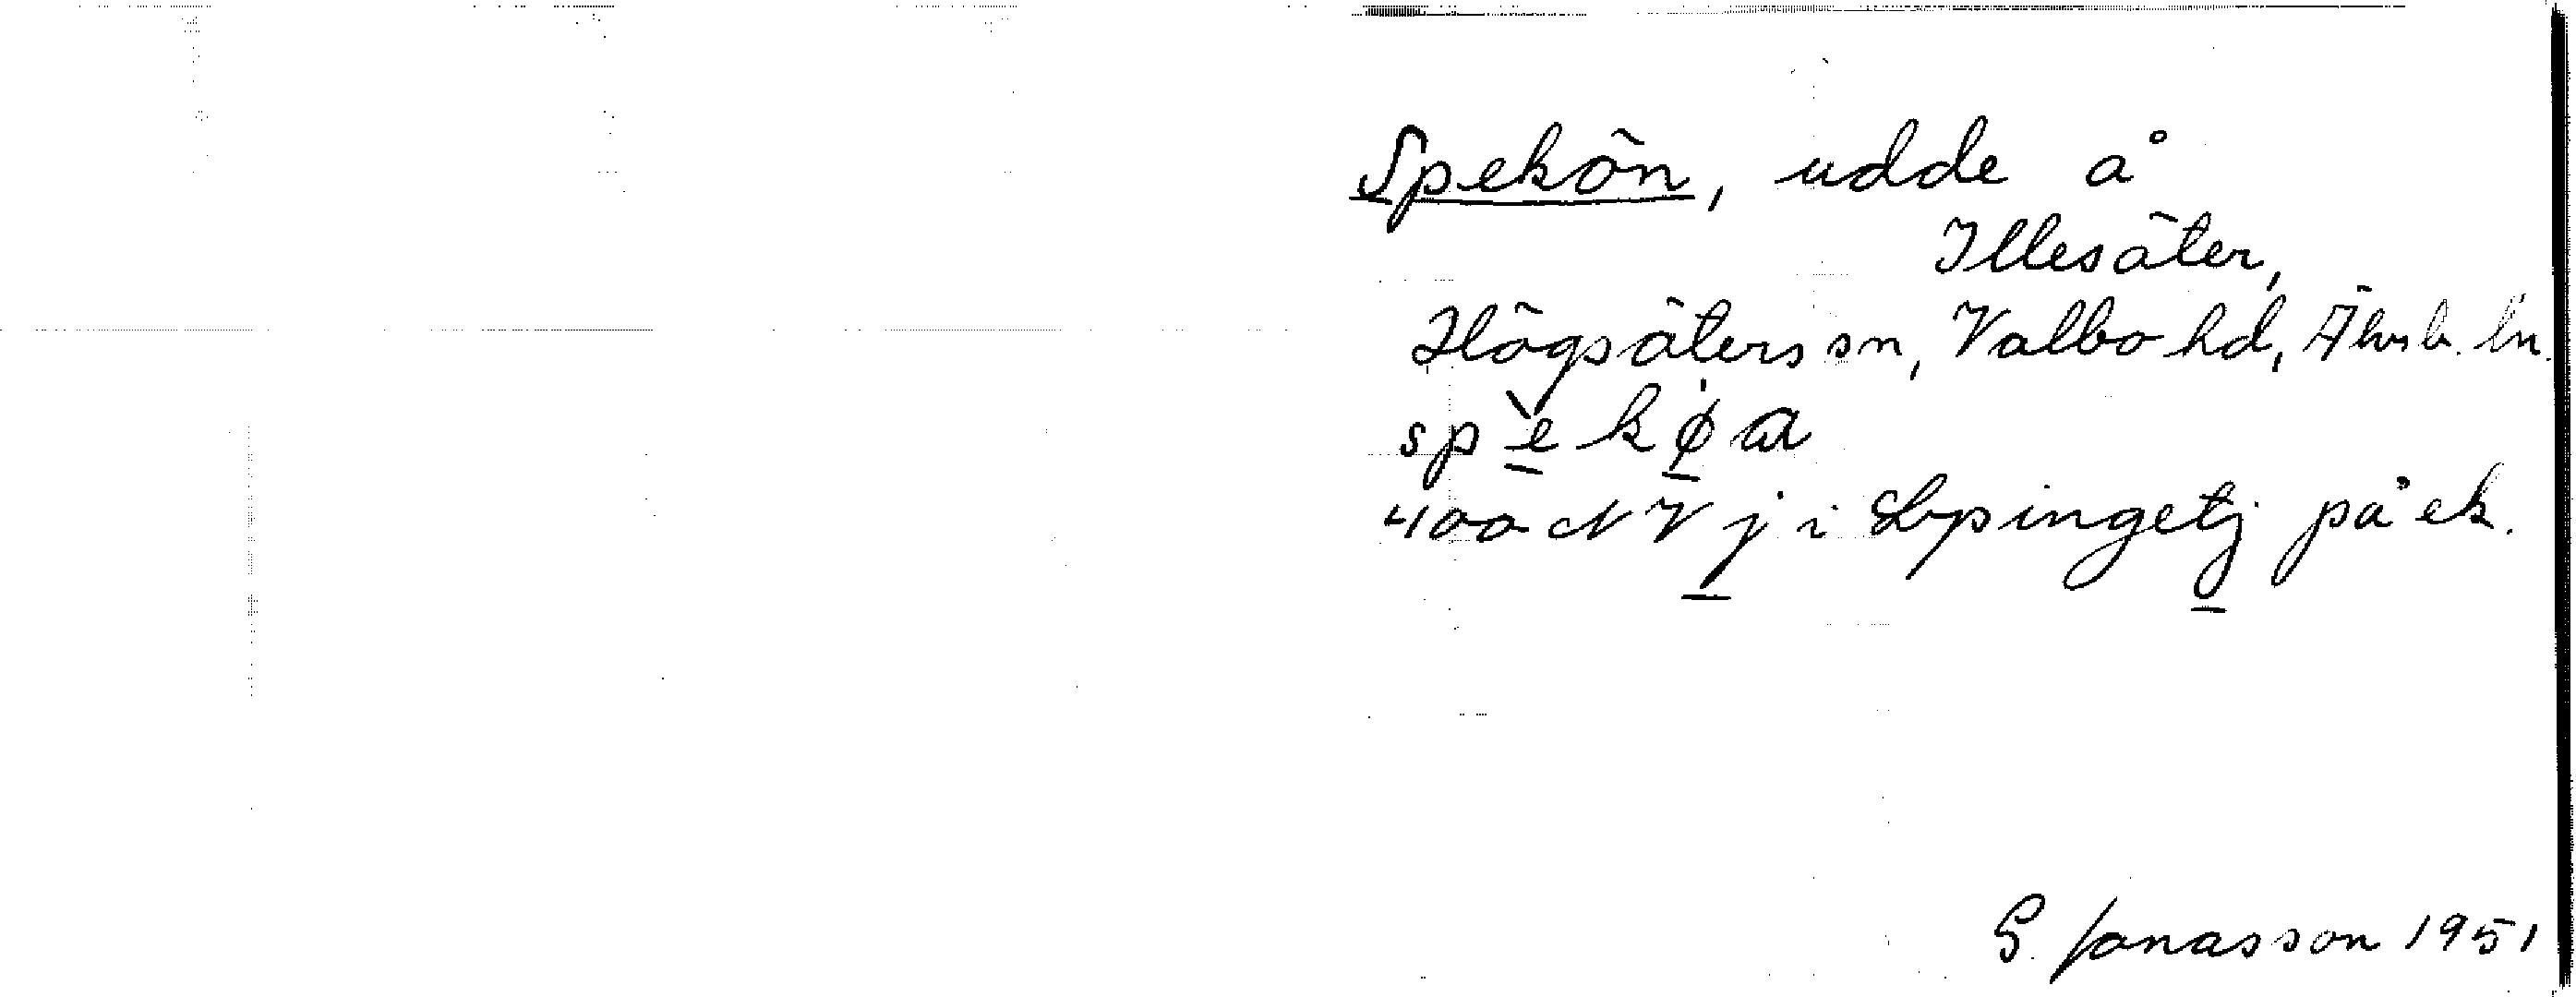 Spekön, udde å
Illesäter,
Högsäters sn, Valbo hd, Älvsb. ln.
spèkøa
400 NV j i Spingetj på ek.
G. Jonasson 1951